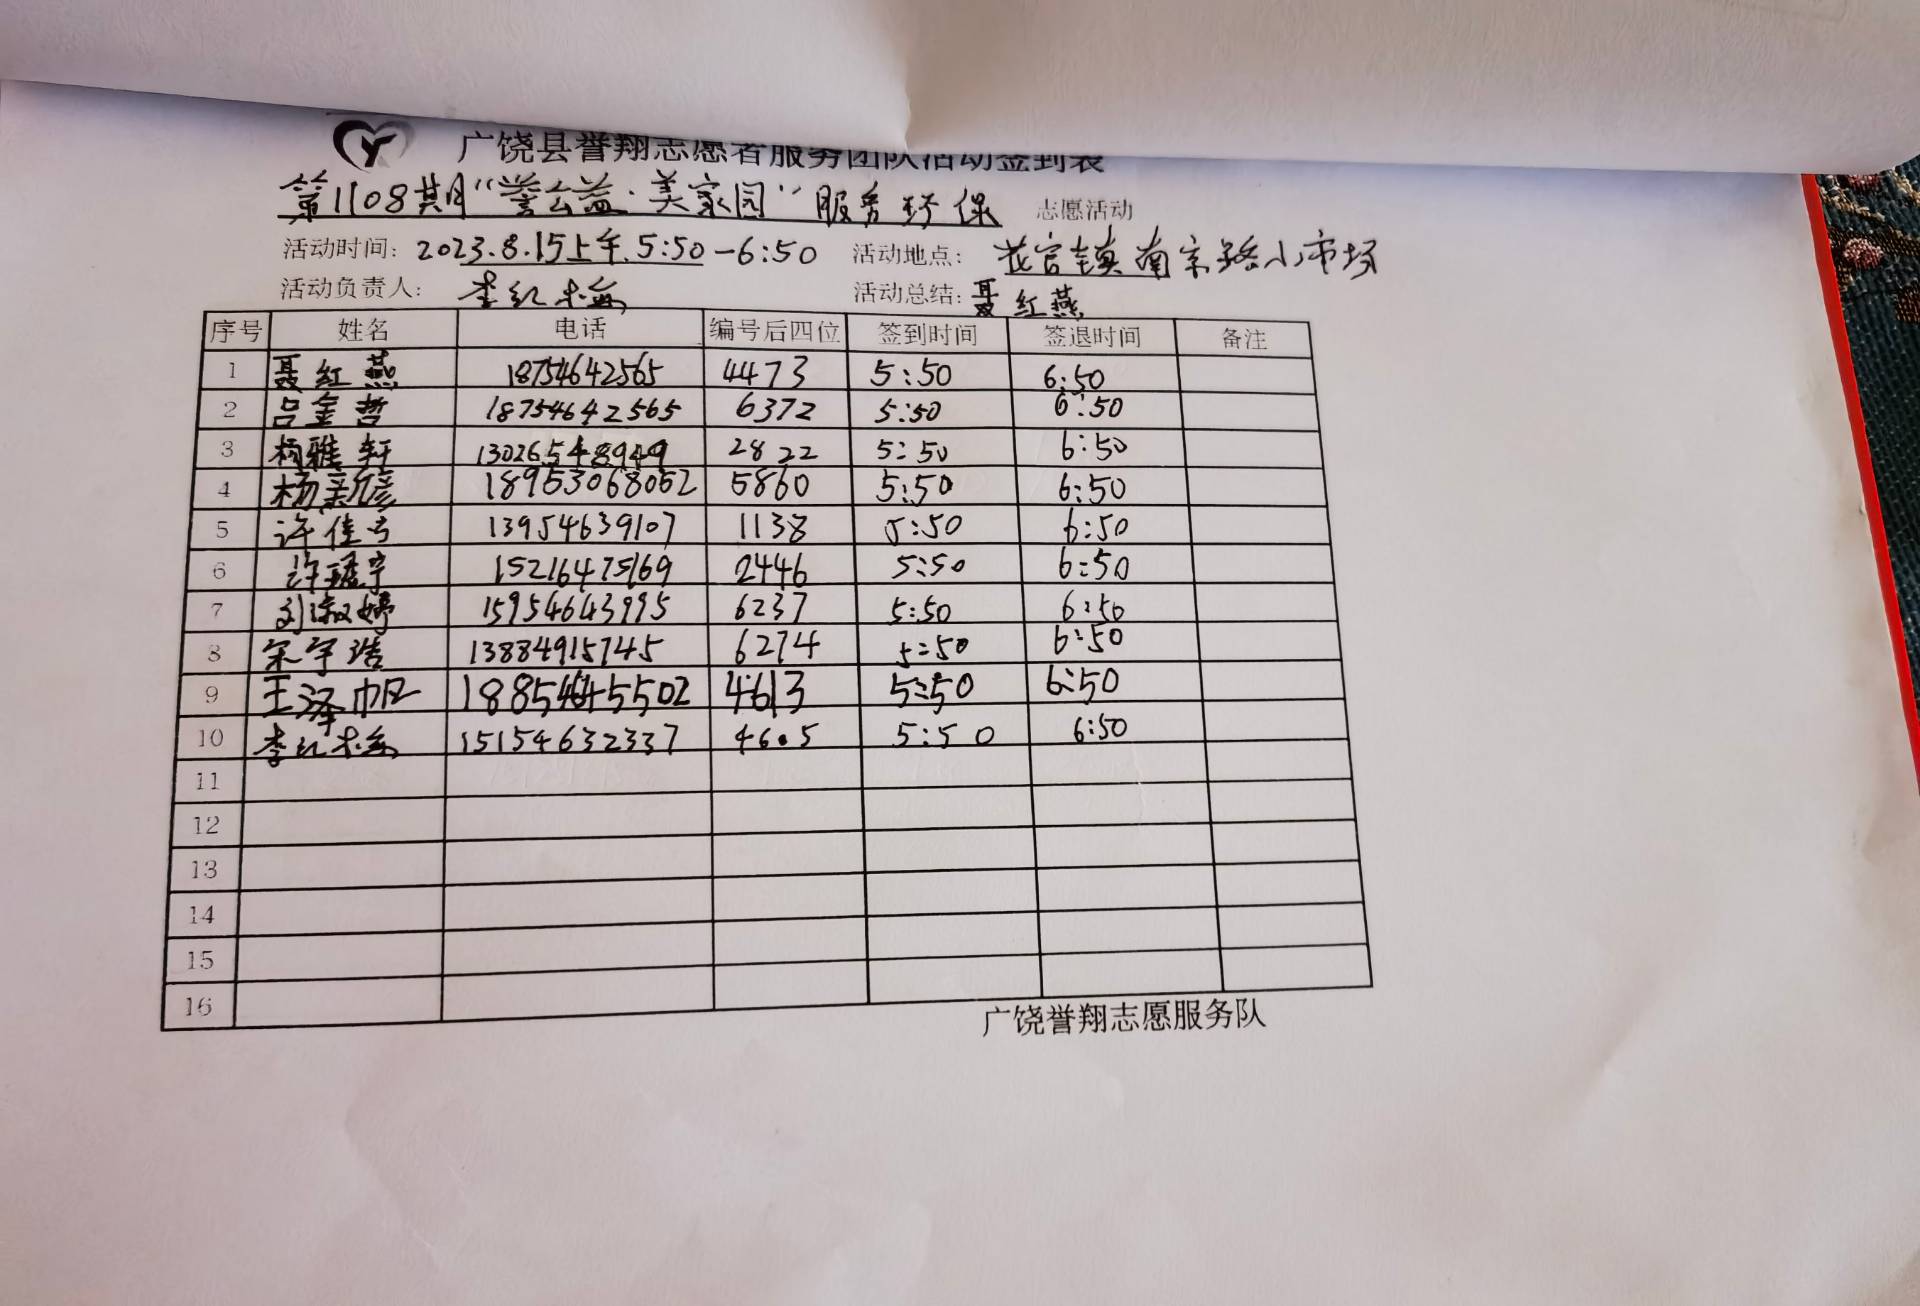 广饶县誉翔志愿者服务团队活动签到表
第1108期"誉公益·美家园"服务环保 志愿活动
活动时间: 2023.8.15上午.5:50-6:50 活动地点: 花官镇南京路小市场
活动负责人: 李红梅 活动总结: 聂红燕
序号 姓名 电话 编号后四位 签到时间 签退时间 备注
1 聂红燕 18754642565 4473 5:50 6:50
2 吕金哲 18754642565 6372 5:50 6:50
3 杨雅轩 13026548949 2822 5:50 6:50
4 杨 18953068052 5860 5:50 6:50
5 许佳 13954639107 1138 5:50 6:50
6 许 宇 15216475169 2446 5:50 6:50
7 刘淑婷 15954643995 6237 5:50 6:50
8 宋宇浩 13884915745 6274 5:50 6:50
9 王泽帆 18854645502 4613 5:50 6:50
10 李红梅 15154632337 4605 5:50 6:50
11
12
13
14
15
16
广饶誉翔志愿服务队